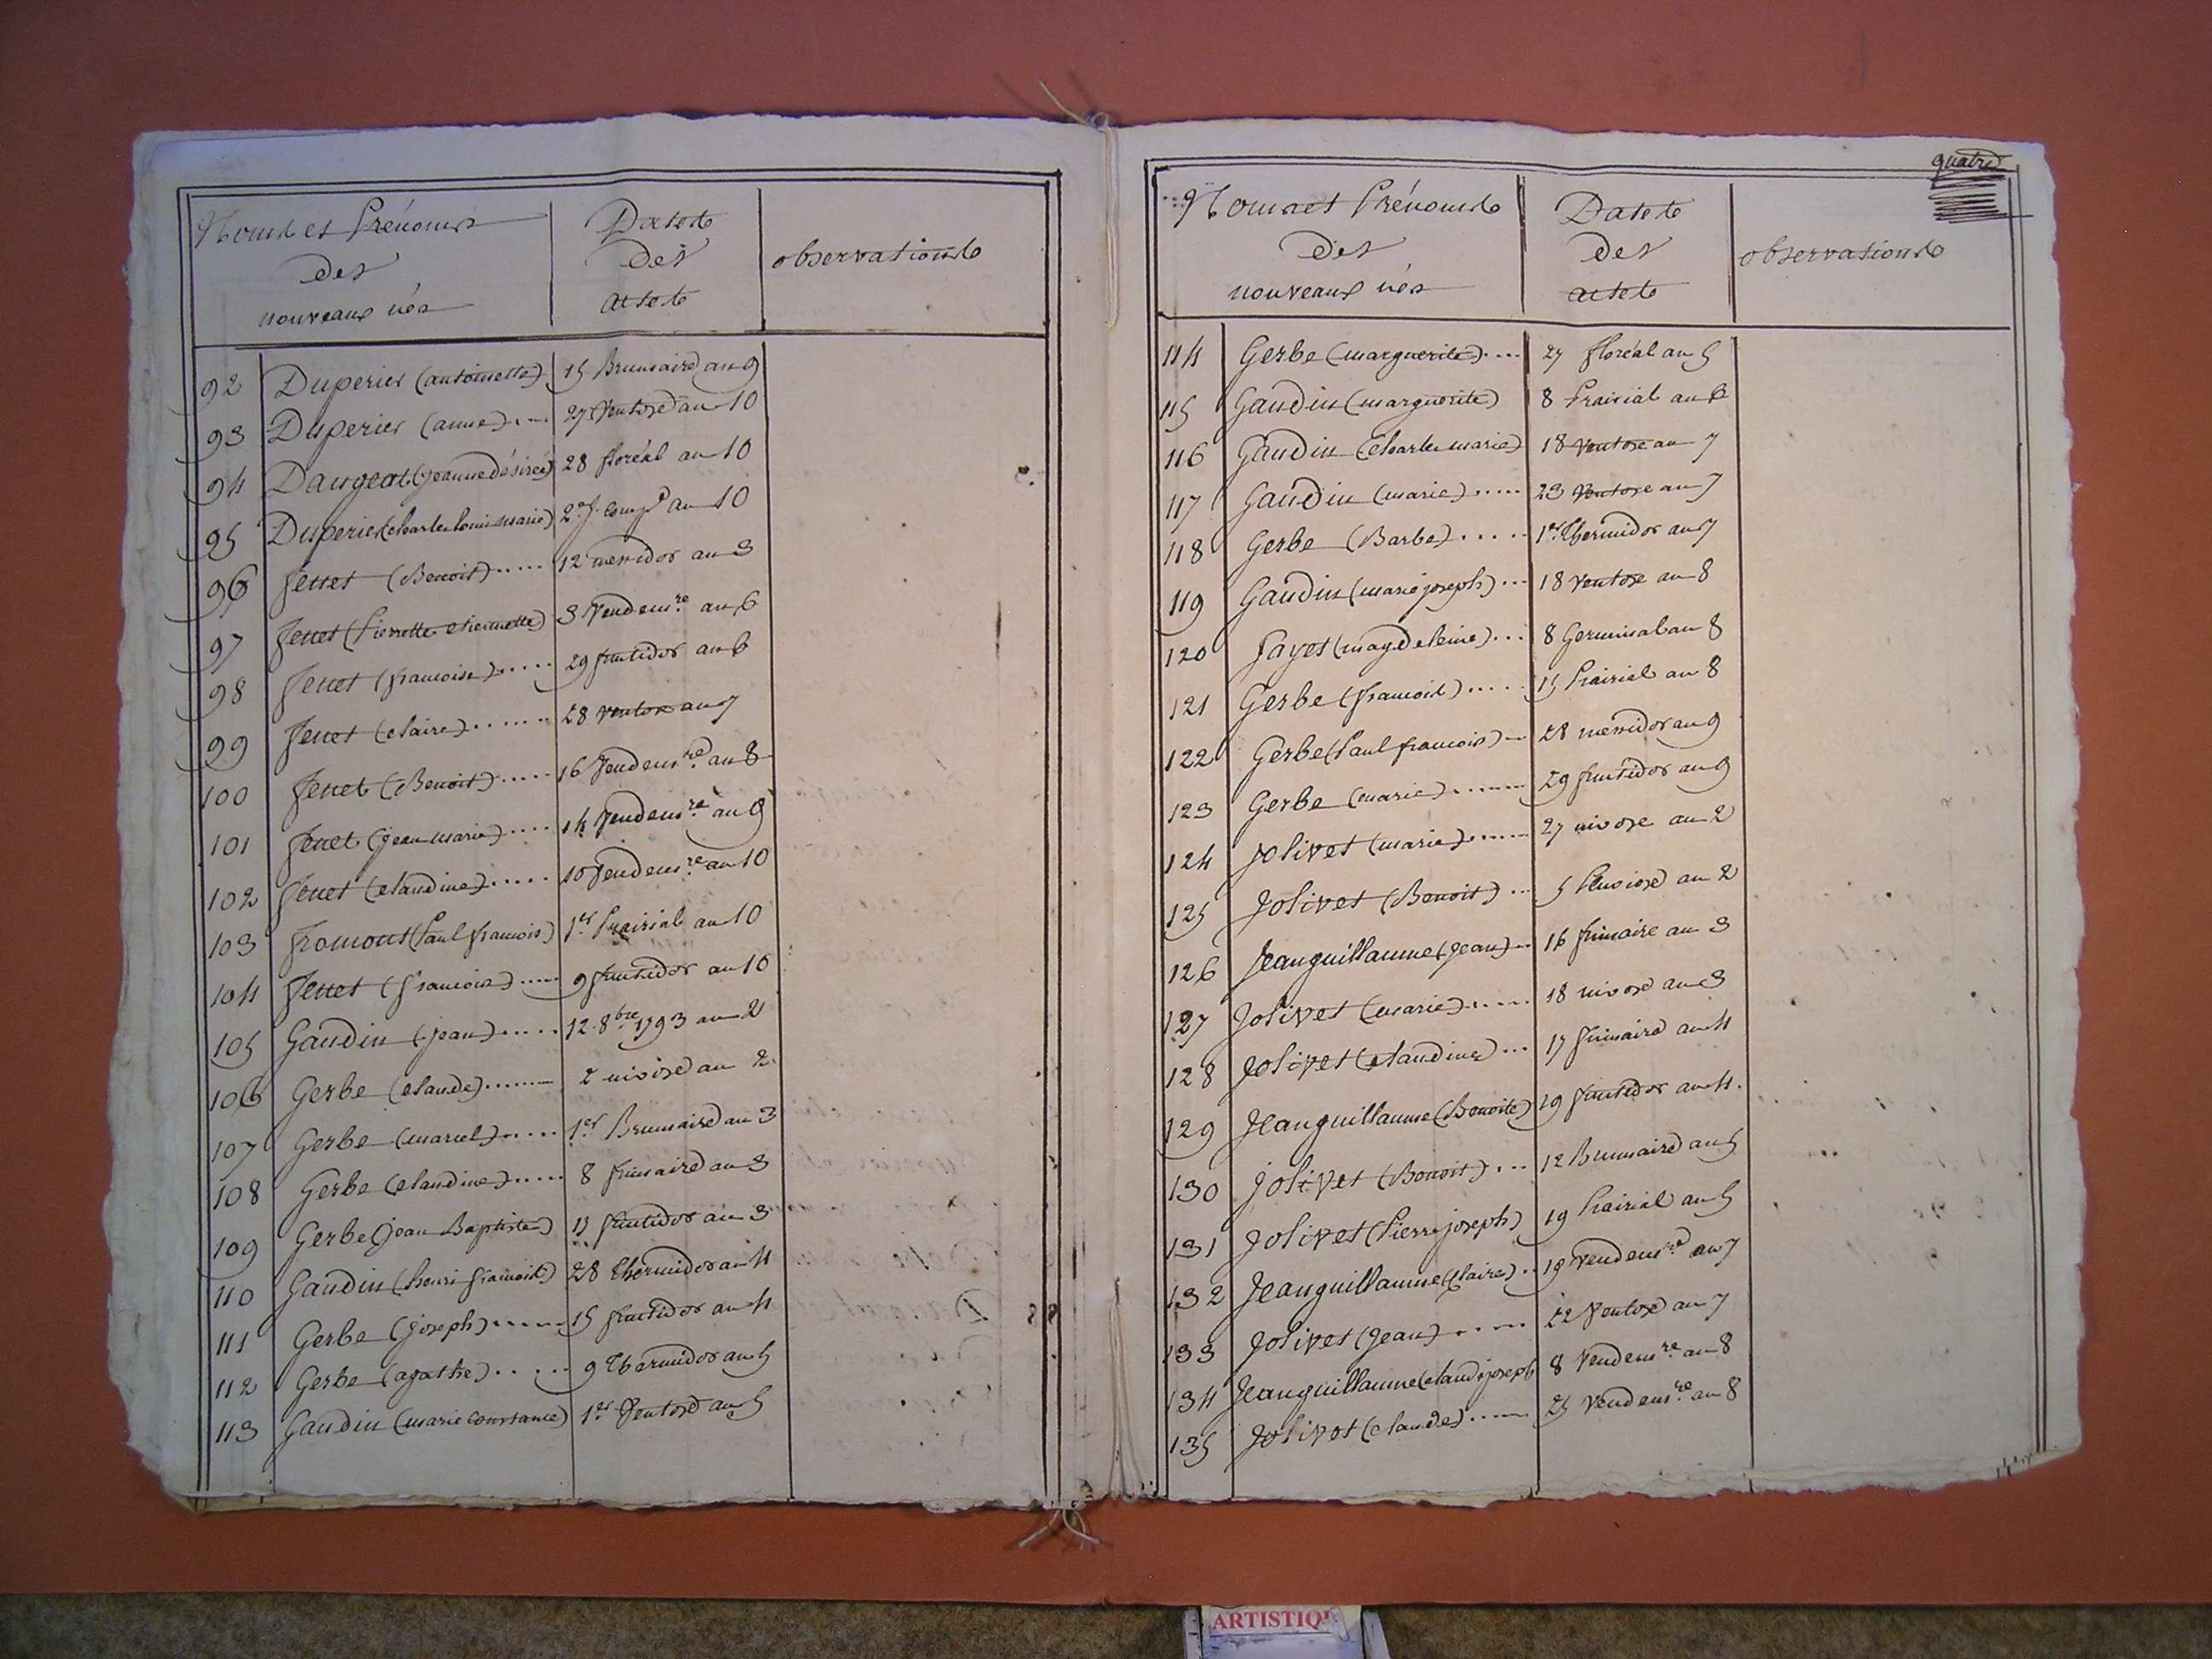 Noms et Prénoms
des
nouveaux nés
Dates
des
actes
observations
92 Duperier (antoinette) 15 Brumaire an 9
93 Duperier (anne) .... 27 Ventose an 10
94 Daugeot (jeanne désirée) 28 floréal an 10
95 Duperier (charles louis marie) 2e j. comp. an 10
96 fenet (Benoit) ..... 12 messidor an 3
97 fenet (Pierrette etiennette) 3 Vendemre an 6
98 fenet (francoise) ..... 29 fructidor an 6
99 fenet (claire) ....... 28 ventose an 7
100 fenet (Benoit) ..... 16 Vendemre an 8
101 fenet (jean marie) .... 14 Vendemre an 9
102 fenet (claudine) ..... 10 Vendemre an 10
103 fromont (Paul francois) 1er Prairial an 10
104 fenet (francois) ..... 9 fructidor an 10
105 Gaudin (jean) ..... 12 8bre 1793 an 2
106 Gerbe (claude) ....... 2 nivose an 2
107 Gerbe (marcel) ..... 1er Brumaire an 3
108 Gerbe (claudine) ..... 8 frimaire an 3
109 Gerbe (jean Baptiste) 13 fructidor an 3
110 Gaudin (henri francois) 28 Thermidor an 4
111 Gerbe (joseph) ..... 15 fructidor an 4
112 Gerbe (agathe) ..... 9 Thermidor an 5
113 Gaudin (marie constance) 1er Ventose an 5
quatre
Noms et Prénoms
des
nouveaux nés
Dates
des
actes
observations
114 Gerbe (marguerite) .... 27 floréal an 5
115 Gaudin (marguerite) 8 Prairial an 6
116 Gaudin (charles marie) 18 ventose an 7
117 Gaudin (marie) ..... 23 Ventose an 7
118 Gerbe (Barbe) ..... 1er Thermidor an 7
119 Gaudin (marie joseph) ... 18 ventose an 8
120 Gayet (magdeleine) ... 8 Germinal an 8
121 Gerbe (francois) ..... 15 Prairial an 8
122 Gerbe (Paul francois) .. 28 messidor an 9
123 Gerbe (marie) ....... 29 fructidor an 9
124 Jolivet (marie) ...... 27 nivose an 2
125 Jolivet (Benoit) ... 5 Pluviose an 2
126 Jeanguillaume (jean) .. 16 frimaire an 3
127 Jolivet (marie) ..... 18 nivose an 3
128 Jolivet (claudine) ... 17 frimaire an 4
129 Jeanguillaume (Benoite) 29 fructidor an 4.
130 Jolivet (Benoit) ... 12 Brumaire an 5
131 Jolivet (Pierre joseph) 19 Prairial an 5
132 Jeanguillaume (claire) .. 19 Vendemre an 7
133 Jolivet (jean) ..... 22 Ventose an 7
134 Jeanguillaume (claude joseph 8 Vendemre an 8
135 Jolivet (claude) ..... 25 Vendemre an 8
ARTISTIQU